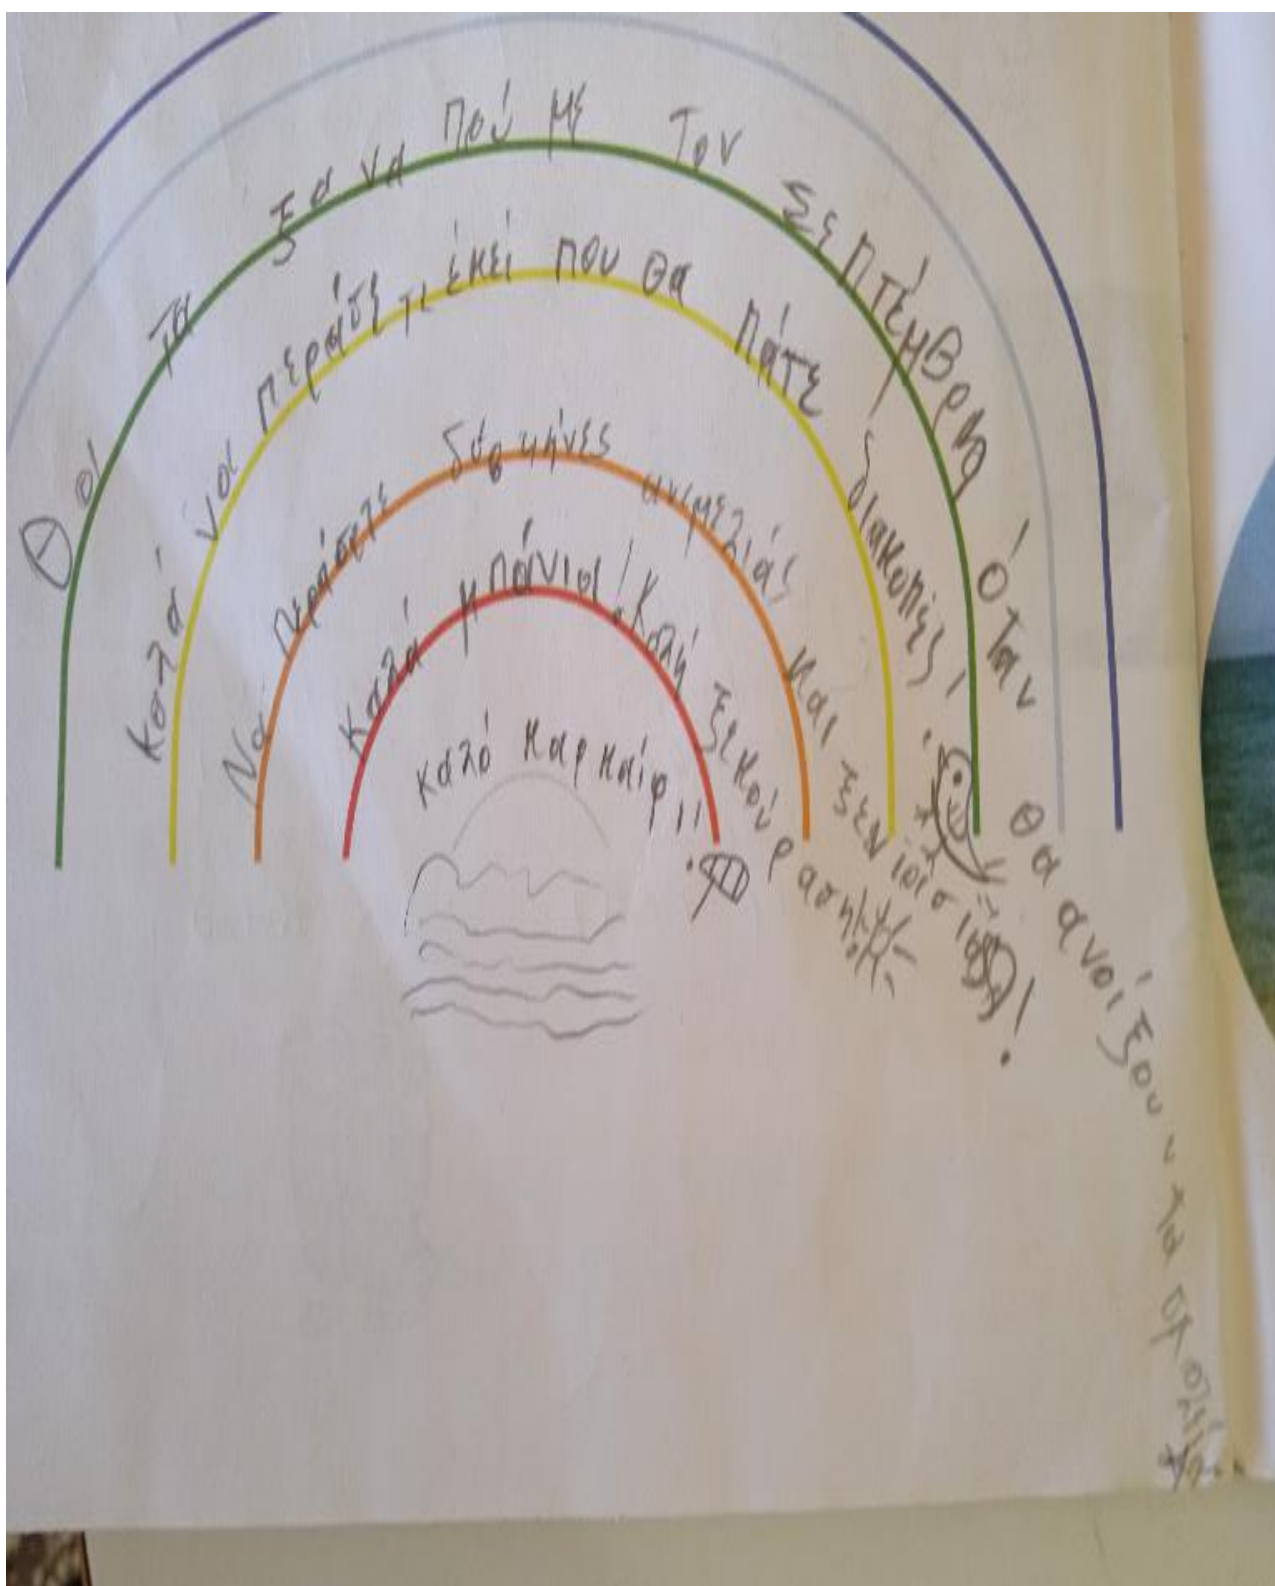 Θα τα ξαναπού με τον Σεπτέμβρη όταν θα ανοίξουν τα σχολεία
καλά να περάσετε εκεί που θα πάτε διακοπές!
Να περάσετε δύο μήνες ανεμελιάς και ξενιασιάς!
Καλά μπάνια! Καλή ξεκούραση!
καλό καρκαίρι!!